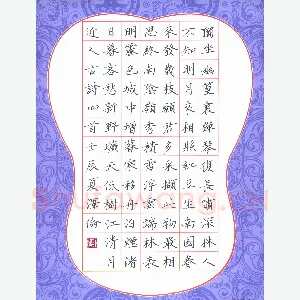 獨坐幽篁裏彈琴復長嘯深林人
不知明月來相照紅豆生南國春
來發幾枝願君多采擷此物最相
思終南陰嶺秀積雪浮雲端林表
明霽色城中增暮寒移舟泊煙渚
日暮客愁新野曠天低樹江清月
近人古詩四首壬辰夏澤